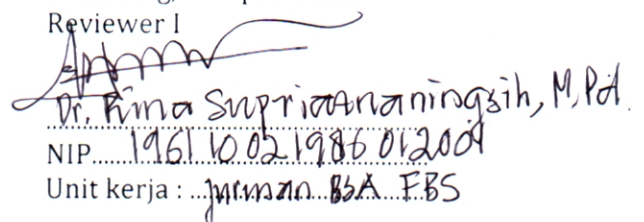 Reviewer I
Dr. Rima Supriatnaningsih, M,Pd.
NIP......196110021986012001
Unit kerja : ...jurusan BSA FBS